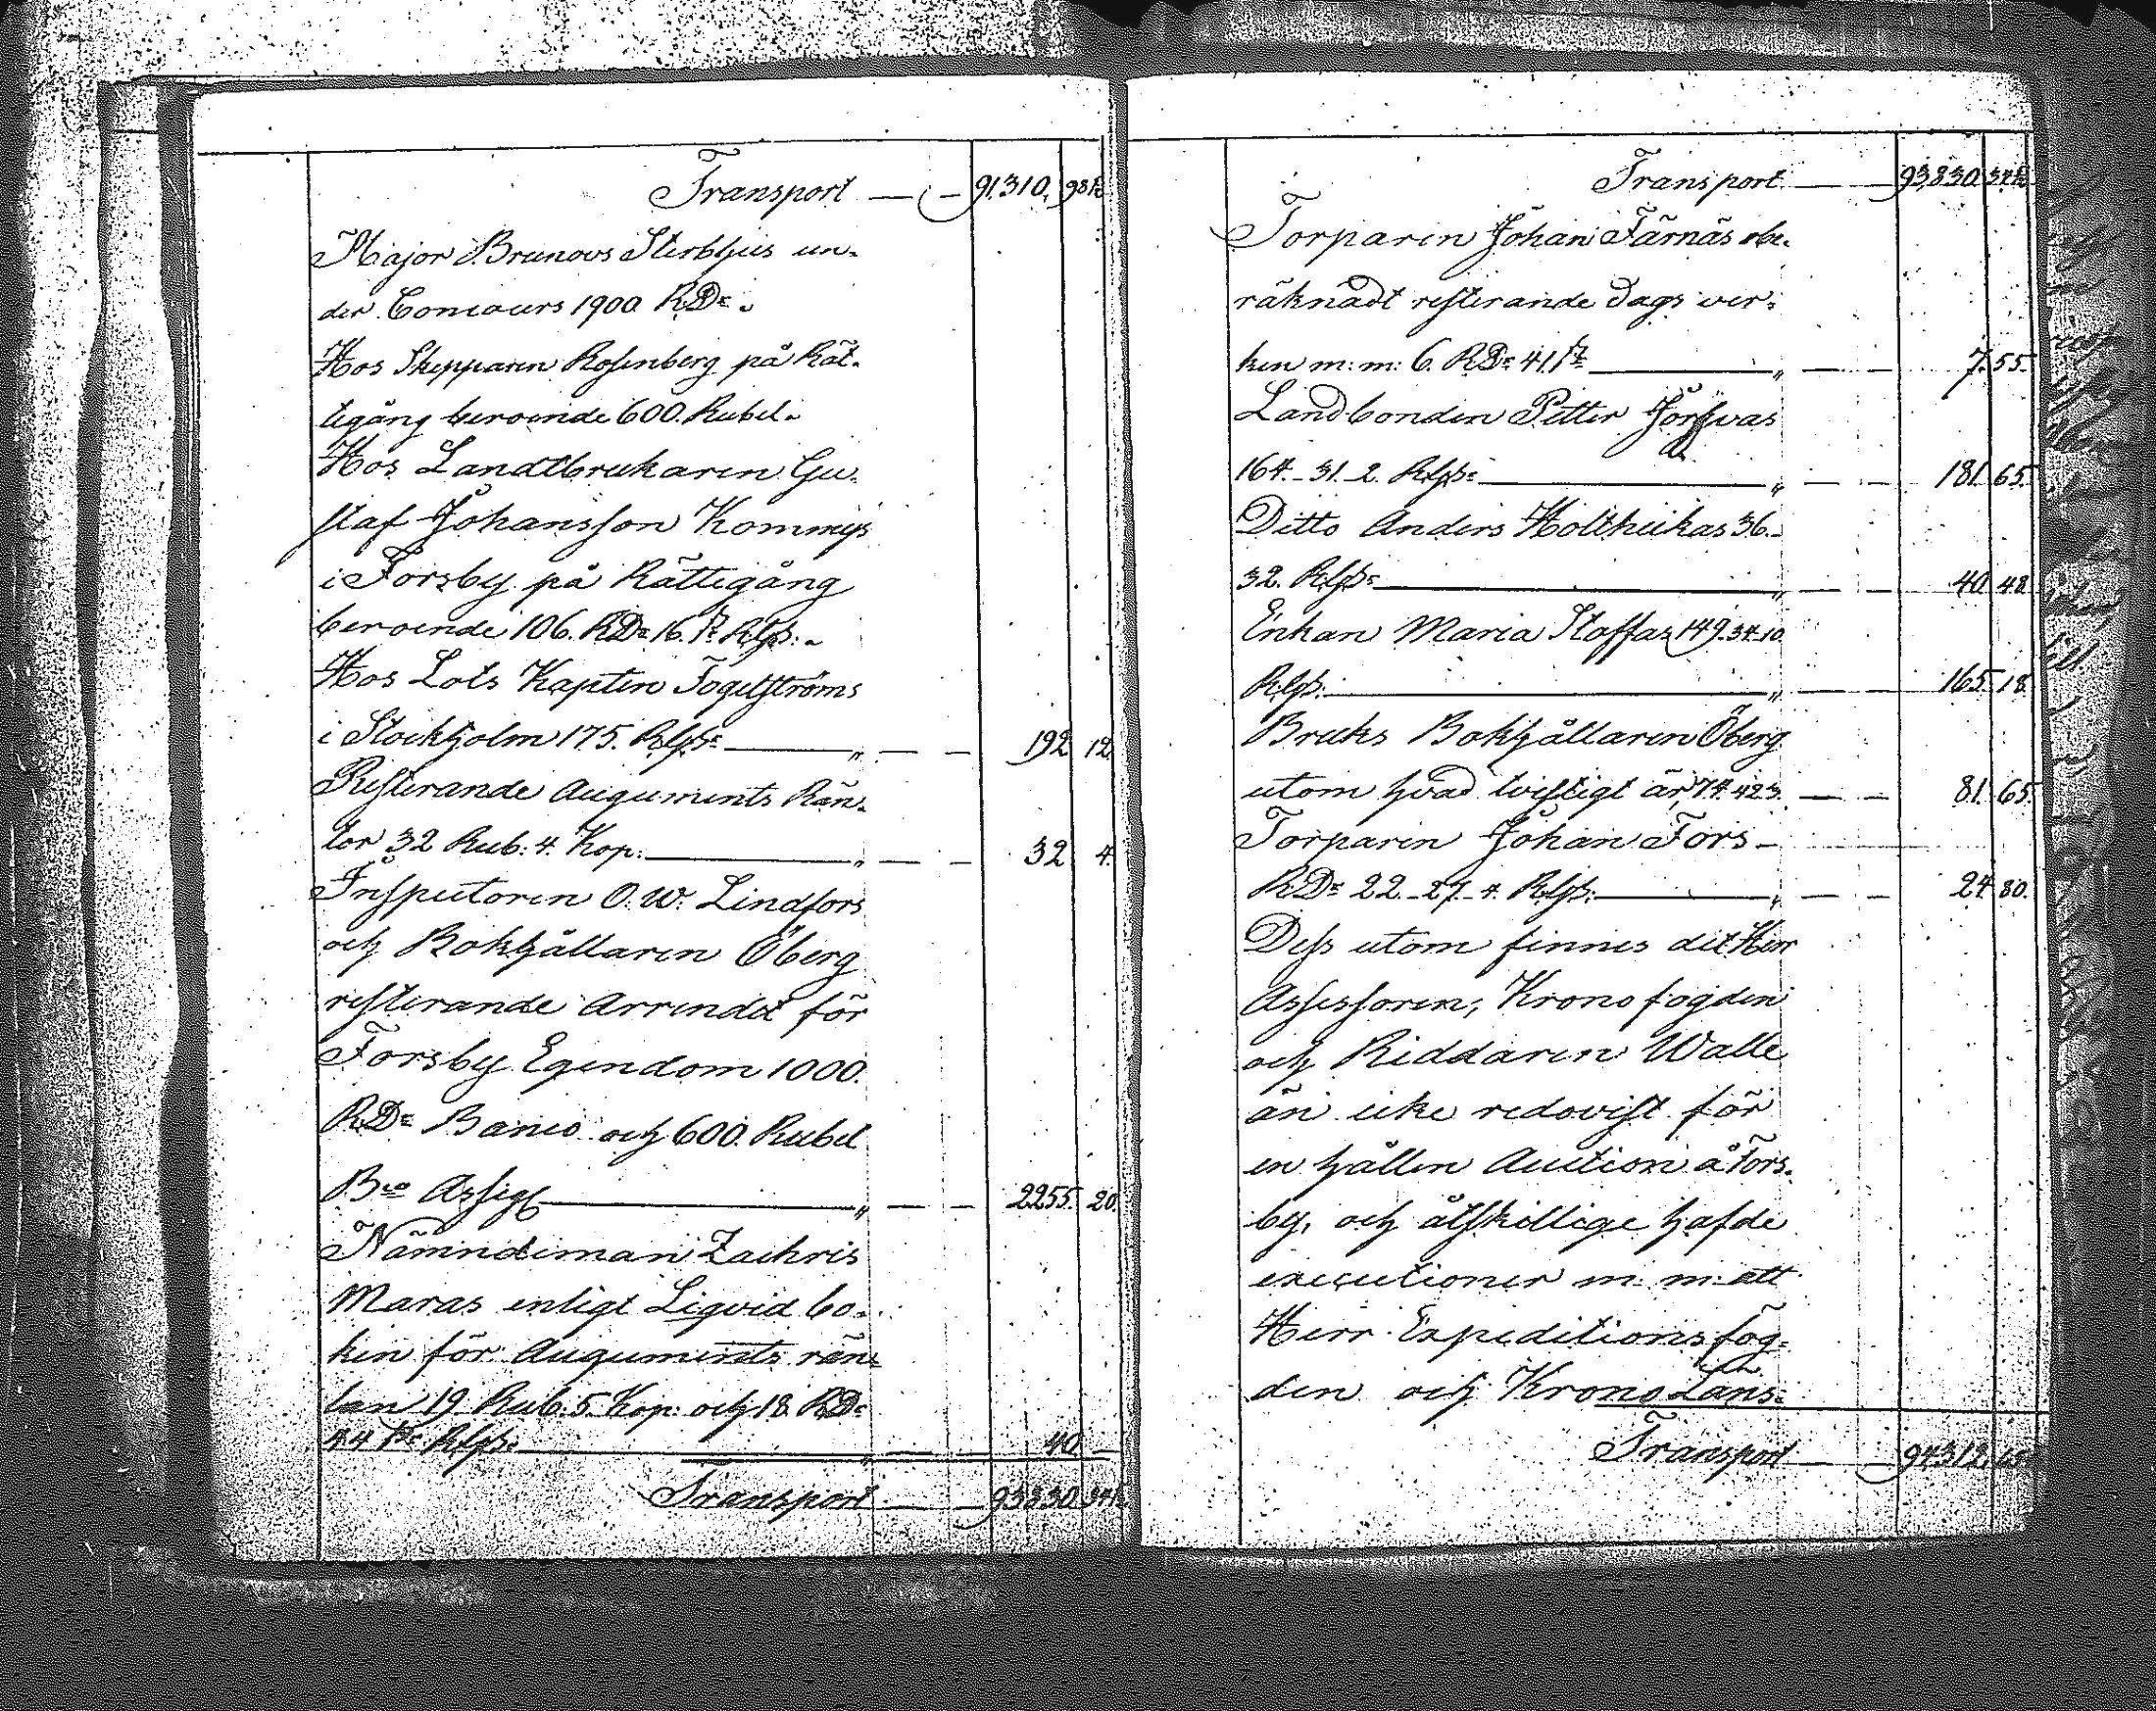 Transport — — 91,310. 98½
Major Brunows Sterbhus un-
der Concours 1900. RDr.
Hos Skepparen Rosenberg på Rät-
tegång beroende 600. Rubel.
Hos Landtbrukaren Gu-
staf Johansson Kommijs
i Forsby på Rättegång
beroende 106. RDr 16. s. Rgs:
Hos Lots Kapten Fogelströms
i Stockholm 175. Rgs: — — 192 12.
Resterande Auguments Rän-
tor 32 Rub: 4. Kop: — — 32 4.
Inspectoren O. W. Lindfors
och Bokhållaren Öberg
resterande Arrendet för
Forsby Egendom 1000.
RDr Banco och 600. Rubel
Bco Assign — — 2255. 20.
Nämndeman Zachris
Maras enligt Liqvid bo-
ken för Auguments rän-
tan 19 Rub: 5 Kop: och 18 RDr
44 s. Rgs: — — 40 —
Transport — — 93830 34½
Transport — — 93,830 34½
Torparen Johan Färnäs obe-
räknadt resterande Dags ver-
ken m: m: 6. RDr 41. s. — — 7. 55.
Landbonden Petter
164. 31. 2. Rgs: — — 181. 65.
Ditto Anders Holthukas 36.
32. Rgs: — — 40 48
Enkan Maria Staffas 149. 34. 10.
Rgs: — — 165. 18.
Bruks Bokhållaren Öberg
utom hvad tvistigt är, 74. 42 3. — — 81. 65.
Torparen Johan Fors —
RDr 22. 27. 4. Rgs: — — 24 80.
Dess utom finnes det Herr
Assessoren, Kronofogden
och Riddaren Walle
än icke redovist för
en hållen Auction å Fors-
by, och åtskillige hafde
executioner m: m: att
Herr Expeditionsfog-
den och Krono Läns-
Transport — — 94312. 65